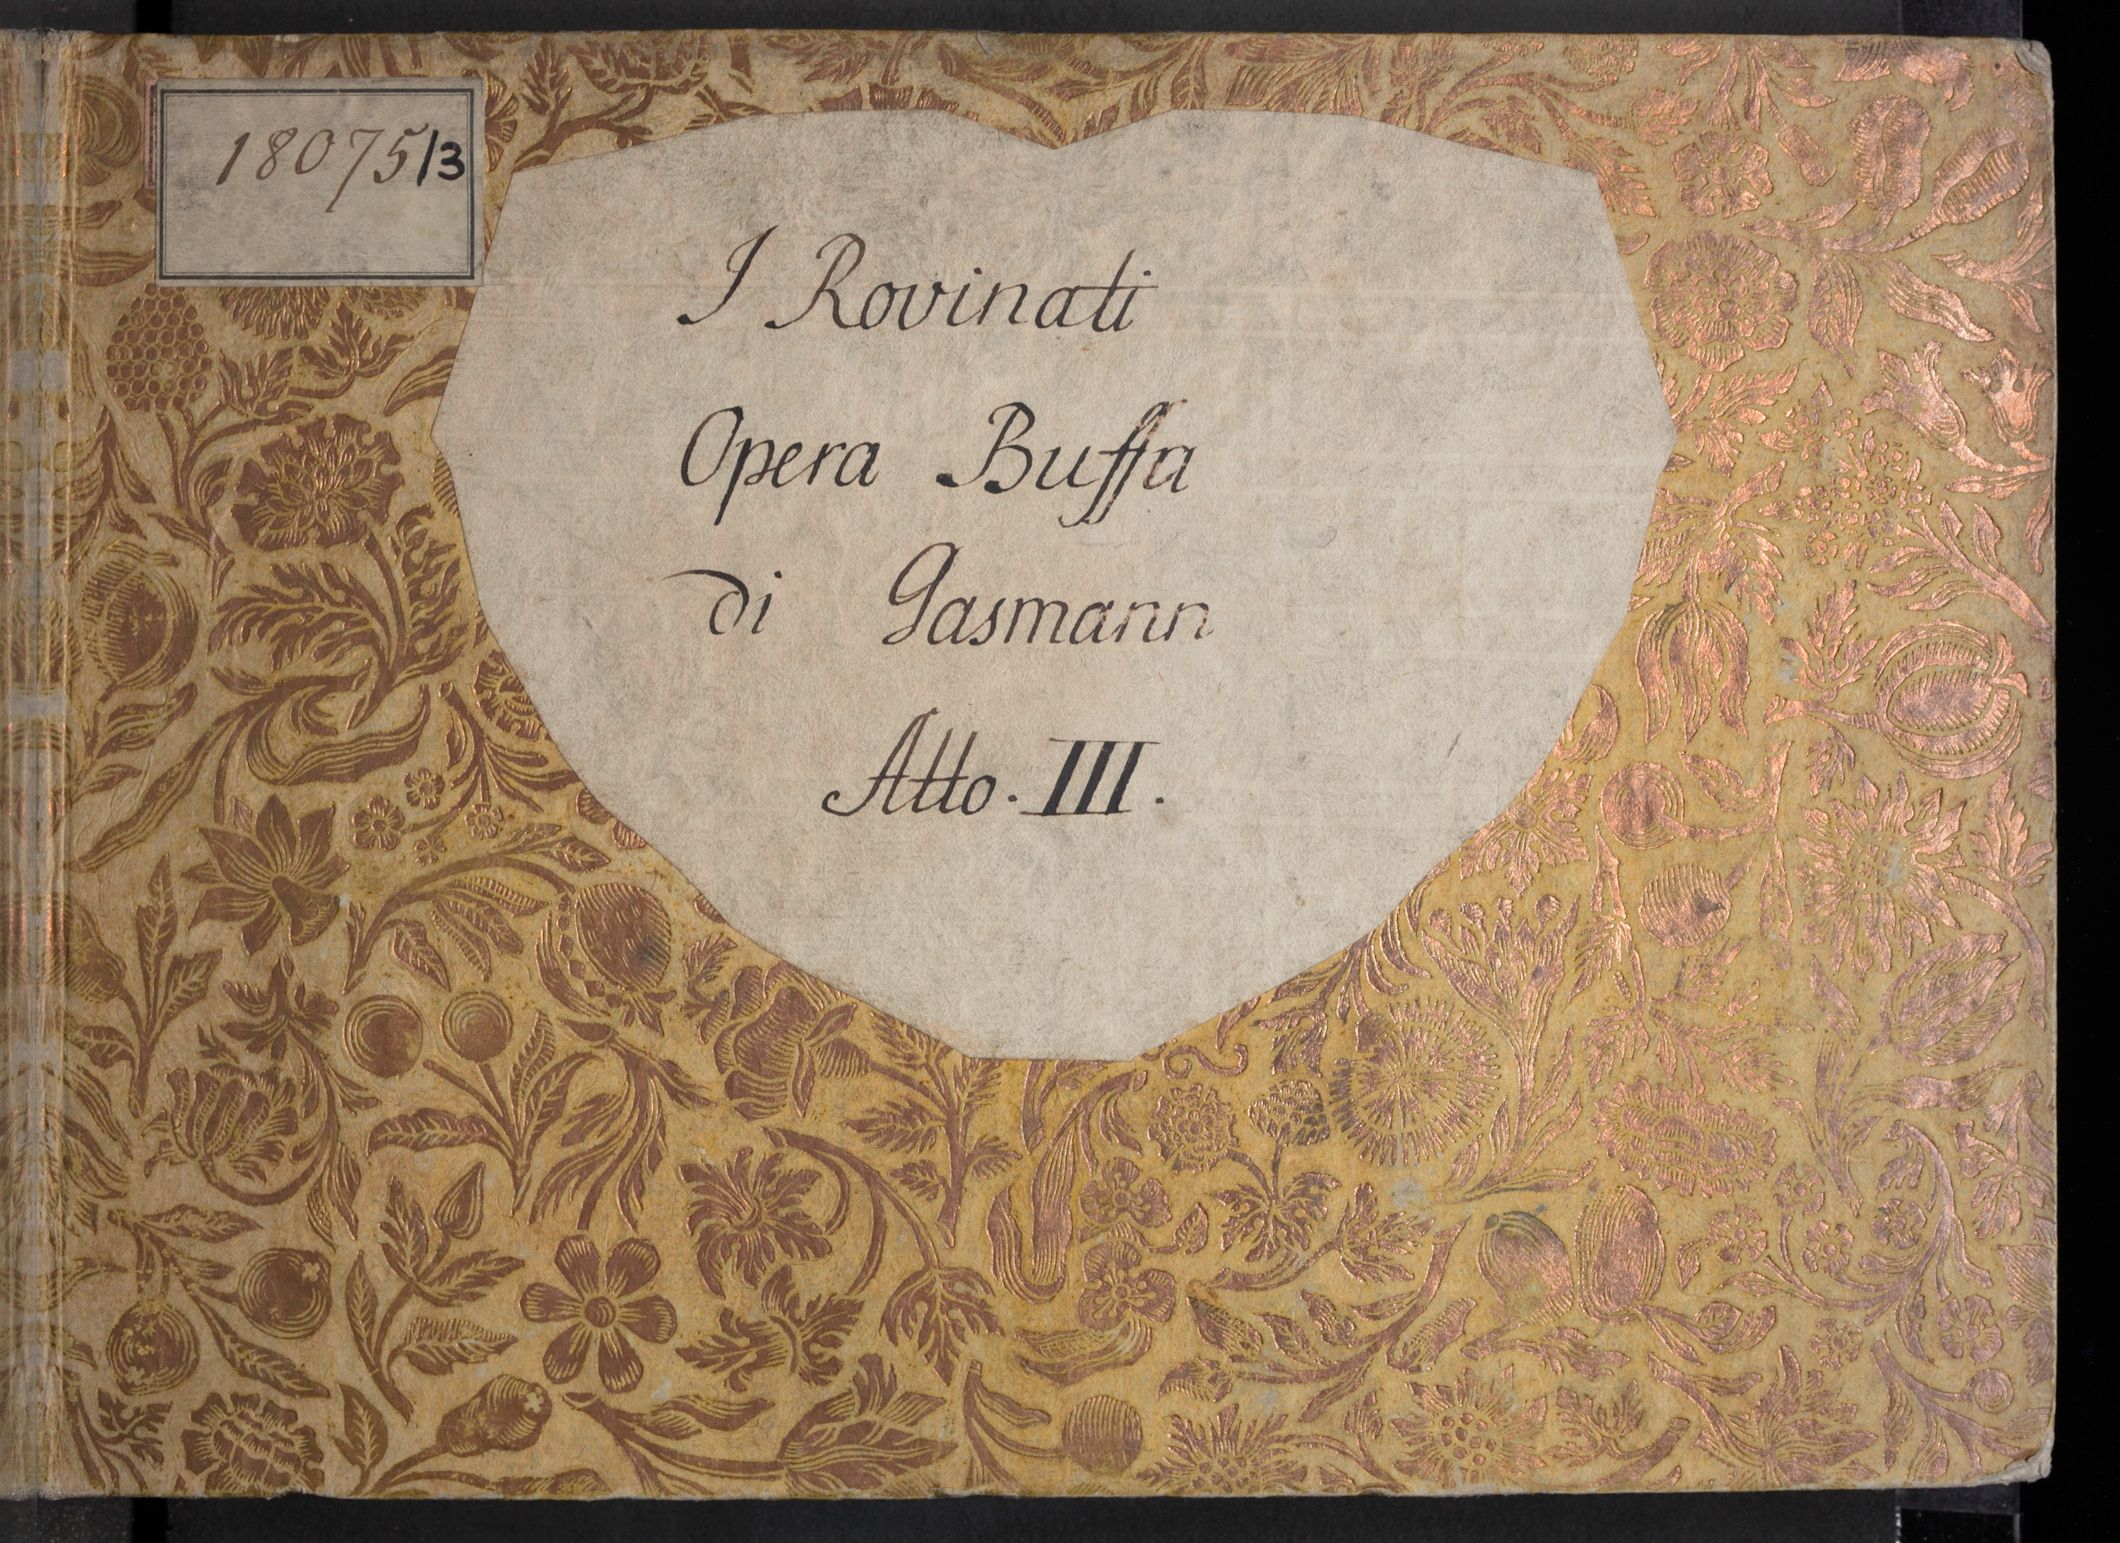 18075/3
I Rovinati
Opera Buffa
di Gasmann
Atto. III.